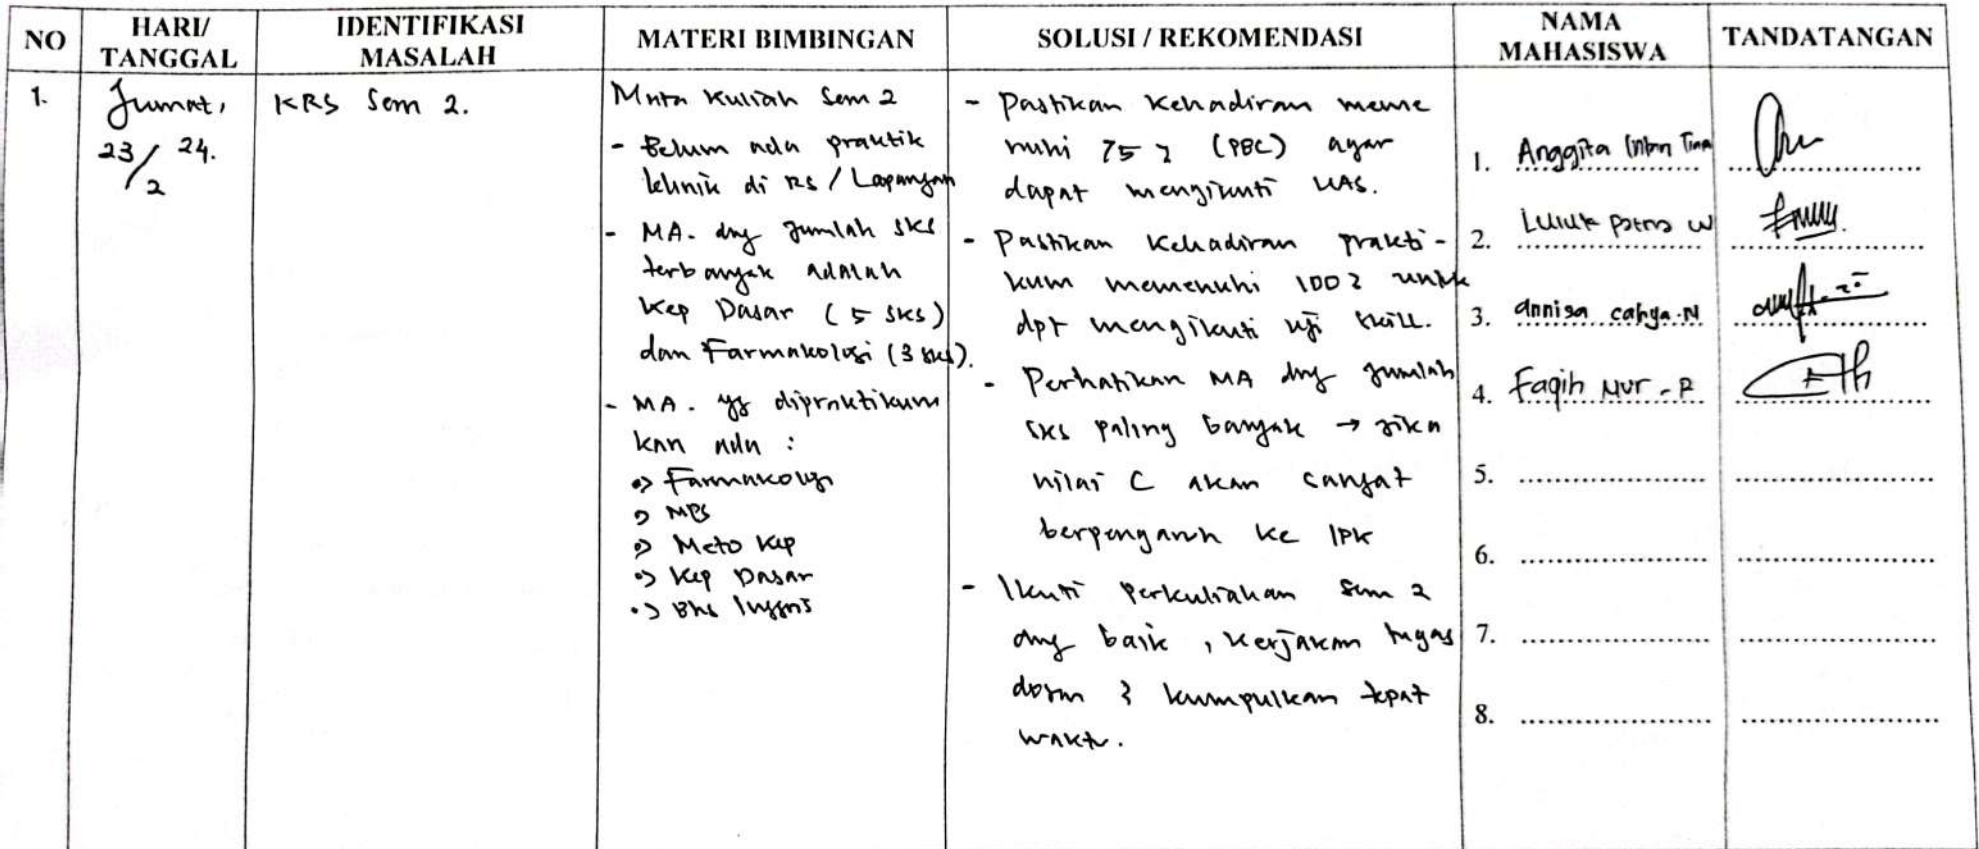 NO
HARI/
TANGGAL
IDENTIFIKASI
MASALAH
MATERI BIMBINGAN
SOLUSI / REKOMENDASI
NAMA
MAHASISWA
TANDATANGAN
1.
Jumat,
23/2 24.
KRS Sem 2.
Mata Kuliah Sem 2
- Belum ada praktik
klinik di RS / Lapangan
- MA. dng Jumlah SKS
terbanyak adalah
Kep Dasar (5 SKS)
dan Farmakologi (3 SKS).
- MA. yg dipraktikum
kan ada :
Farmakologi
Meto Kep
Kep Dasar
Bhs Inggris
- Pastikan Kehadiran meme
nuhi 75 % (PBC) agar
dapat mengikuti UAS.
- Pastikan Kehadiran prakti-
kum memenuhi 100% untuk
dpt mengikuti uji skill.
- Perhatikan MA dng Jumlah
SKS paling banyak → jika
nilai C akan sangat
berpengaruh ke IPK
- Ikuti perkuliahan Sem 2
dng baik, kerjakan tugas
dosen & kumpulkan tepat
waktu.
1. Anggita
2. Luluk W
3. Annisa cahya.N
4. Faqih Nur - P
5.
6.
7.
8.